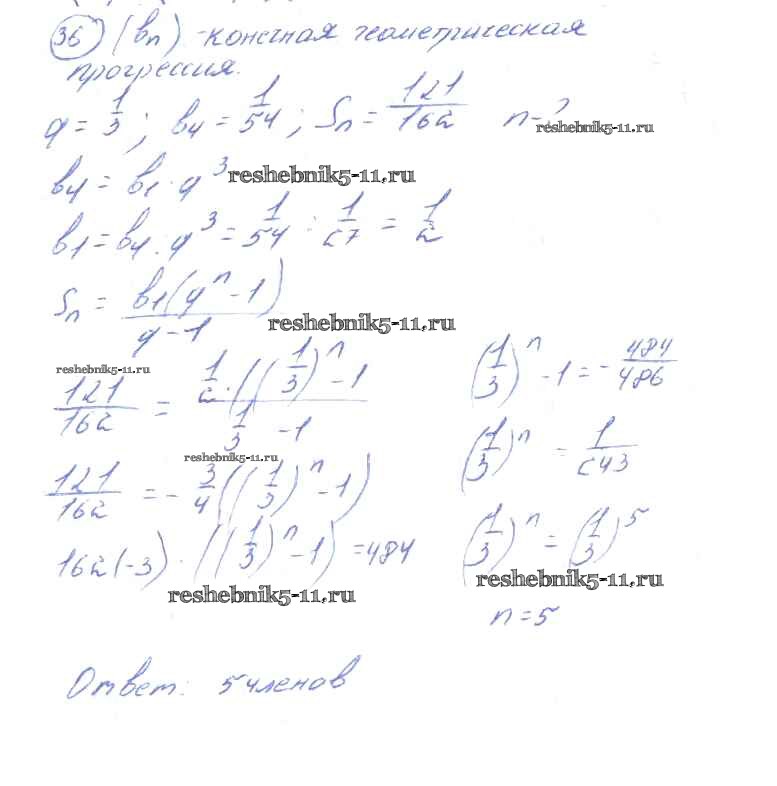 36 (bn) - конечная геометрическая
прогрессия.
q = 1/3; b4 = 1/54; Sn = 121/162 n - ?
reshebnik5-11.ru
b4 = b1 · q^3
reshebnik5-11.ru
b1 = b4 : q^3 = 1/54 : 1/27 = 1/2
Sn = b1(q^n - 1) / q - 1
reshebnik5-11.ru
reshebnik5-11.ru
121/162 = 1/2 · ((1/3)^n - 1 / 1/3 - 1
reshebnik5-11.ru
121/162 = - 3/4 ((1/3)^n - 1)
162(-3) · ((1/3)^n - 1) = 484
reshebnik5-11.ru
(1/3)^n - 1 = - 484/486
(1/3)^n = 1/243
(1/3)^n = (1/3)^5
reshebnik5-11.ru
n = 5
Ответ: 5 членов